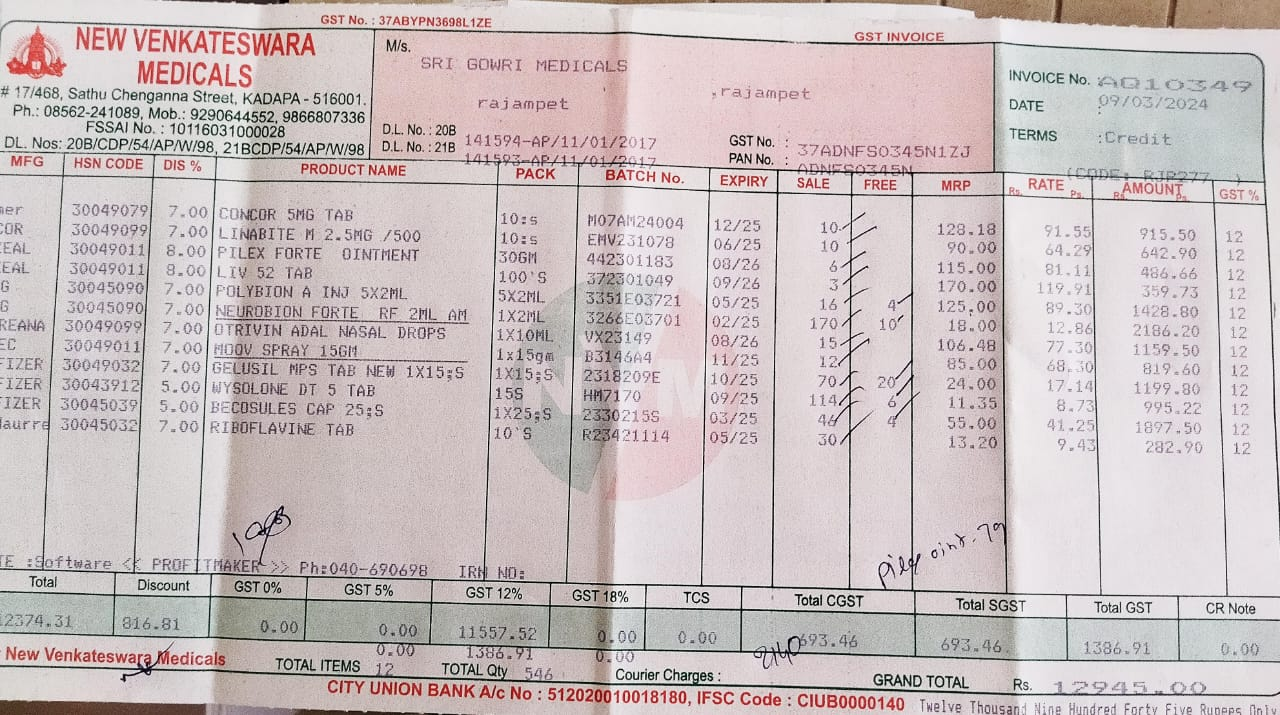 GST No. : 37ABYPN3698L1ZE
GST INVOICE
NEW VENKATESWARA
MEDICALS
# 17/468, Sathu Chenganna Street, KADAPA - 516001.
Ph.: 08562-241089, Mob.: 9290644552, 9866807336
FSSAI No. : 10116031000028
DL. Nos: 20B/CDP/54/AP/W/98, 21BCDP/54/AP/W/98
M/s.
SRI GOWRI MEDICALS
rajampet ,rajampet
D.L. No. : 20B 141594-AP/11/01/2017
D.L. No. : 21B 141593-AP/11/01/2017
GST No. : 37ADNFS0345N1ZJ
PAN No. : ADNFS0345N
INVOICE No. AQ10349
DATE : 09/03/2024
TERMS :Credit
(CODE: RJP277 )
MFG HSN CODE DIS % PRODUCT NAME PACK BATCH No. EXPIRY SALE FREE MRP Rs. RATE Ps. Rs. AMOUNT Ps. GST %
mer 30049079 7.00 CONCOR 5MG TAB 10:s M07AM24004 12/25 10 128.18 91.55 915.50 12
COR 30049099 7.00 LINABITE M 2.5MG /500 10:s EMV231078 06/25 10 90.00 64.29 642.90 12
EAL 30049011 8.00 PILEX FORTE OINTMENT 30GM 442301183 08/26 6 115.00 81.11 486.66 12
EAL 30049011 8.00 LIV 52 TAB 100`S 372301049 09/26 3 170.00 119.91 359.73 12
G 30045090 7.00 POLYBION A INJ 5X2ML 5X2ML 3351E03721 05/25 16 4 125.00 89.30 1428.80 12
G 30045090 7.00 NEUROBION FORTE RF 2ML AM 1X2ML 3266E03701 02/25 170 10 18.00 12.86 2186.20 12
REANA 30049099 7.00 OTRIVIN ADAL NASAL DROPS 1X10ML VX23149 08/26 15 106.48 77.30 1159.50 12
EC 30049011 7.00 MOOV SPRAY 15GM 1x15gm B3146A4 11/25 12 85.00 68.30 819.60 12
FIZER 30049032 7.00 GELUSIL MPS TAB NEW 1X15;S 1X15;S 2318209E 10/25 70 20 24.00 17.14 1199.80 12
FIZER 30043912 5.00 WYSOLONE DT 5 TAB 15S HM7170 09/25 114 6 11.35 8.73 995.22 12
FIZER 30045039 5.00 BECOSULES CAP 25;S 1X25;S 2330215S 03/25 46 4 55.00 41.25 1897.50 12
aurre 30045032 7.00 RIBOFLAVINE TAB 10`S R23421114 05/25 30 13.20 9.43 282.90 12
TE :Software << PROFITMAKER >> Ph:040-690698 IRN NO:
Total Discount GST 0% GST 5% GST 12% GST 18% TCS Total CGST Total SGST Total GST CR Note
12374.31 816.81 0.00 0.00 11557.52 0.00 0.00 693.46 693.46 1386.91 0.00
0.00 1386.91 0.00
New Venkateswara Medicals TOTAL ITEMS 12 TOTAL Qty 546 Courier Charges : GRAND TOTAL Rs. 12945.00
CITY UNION BANK A/c No : 512020010018180, IFSC Code : CIUB0000140 Twelve Thousand Nine Hundred Forty Five Rupees Only